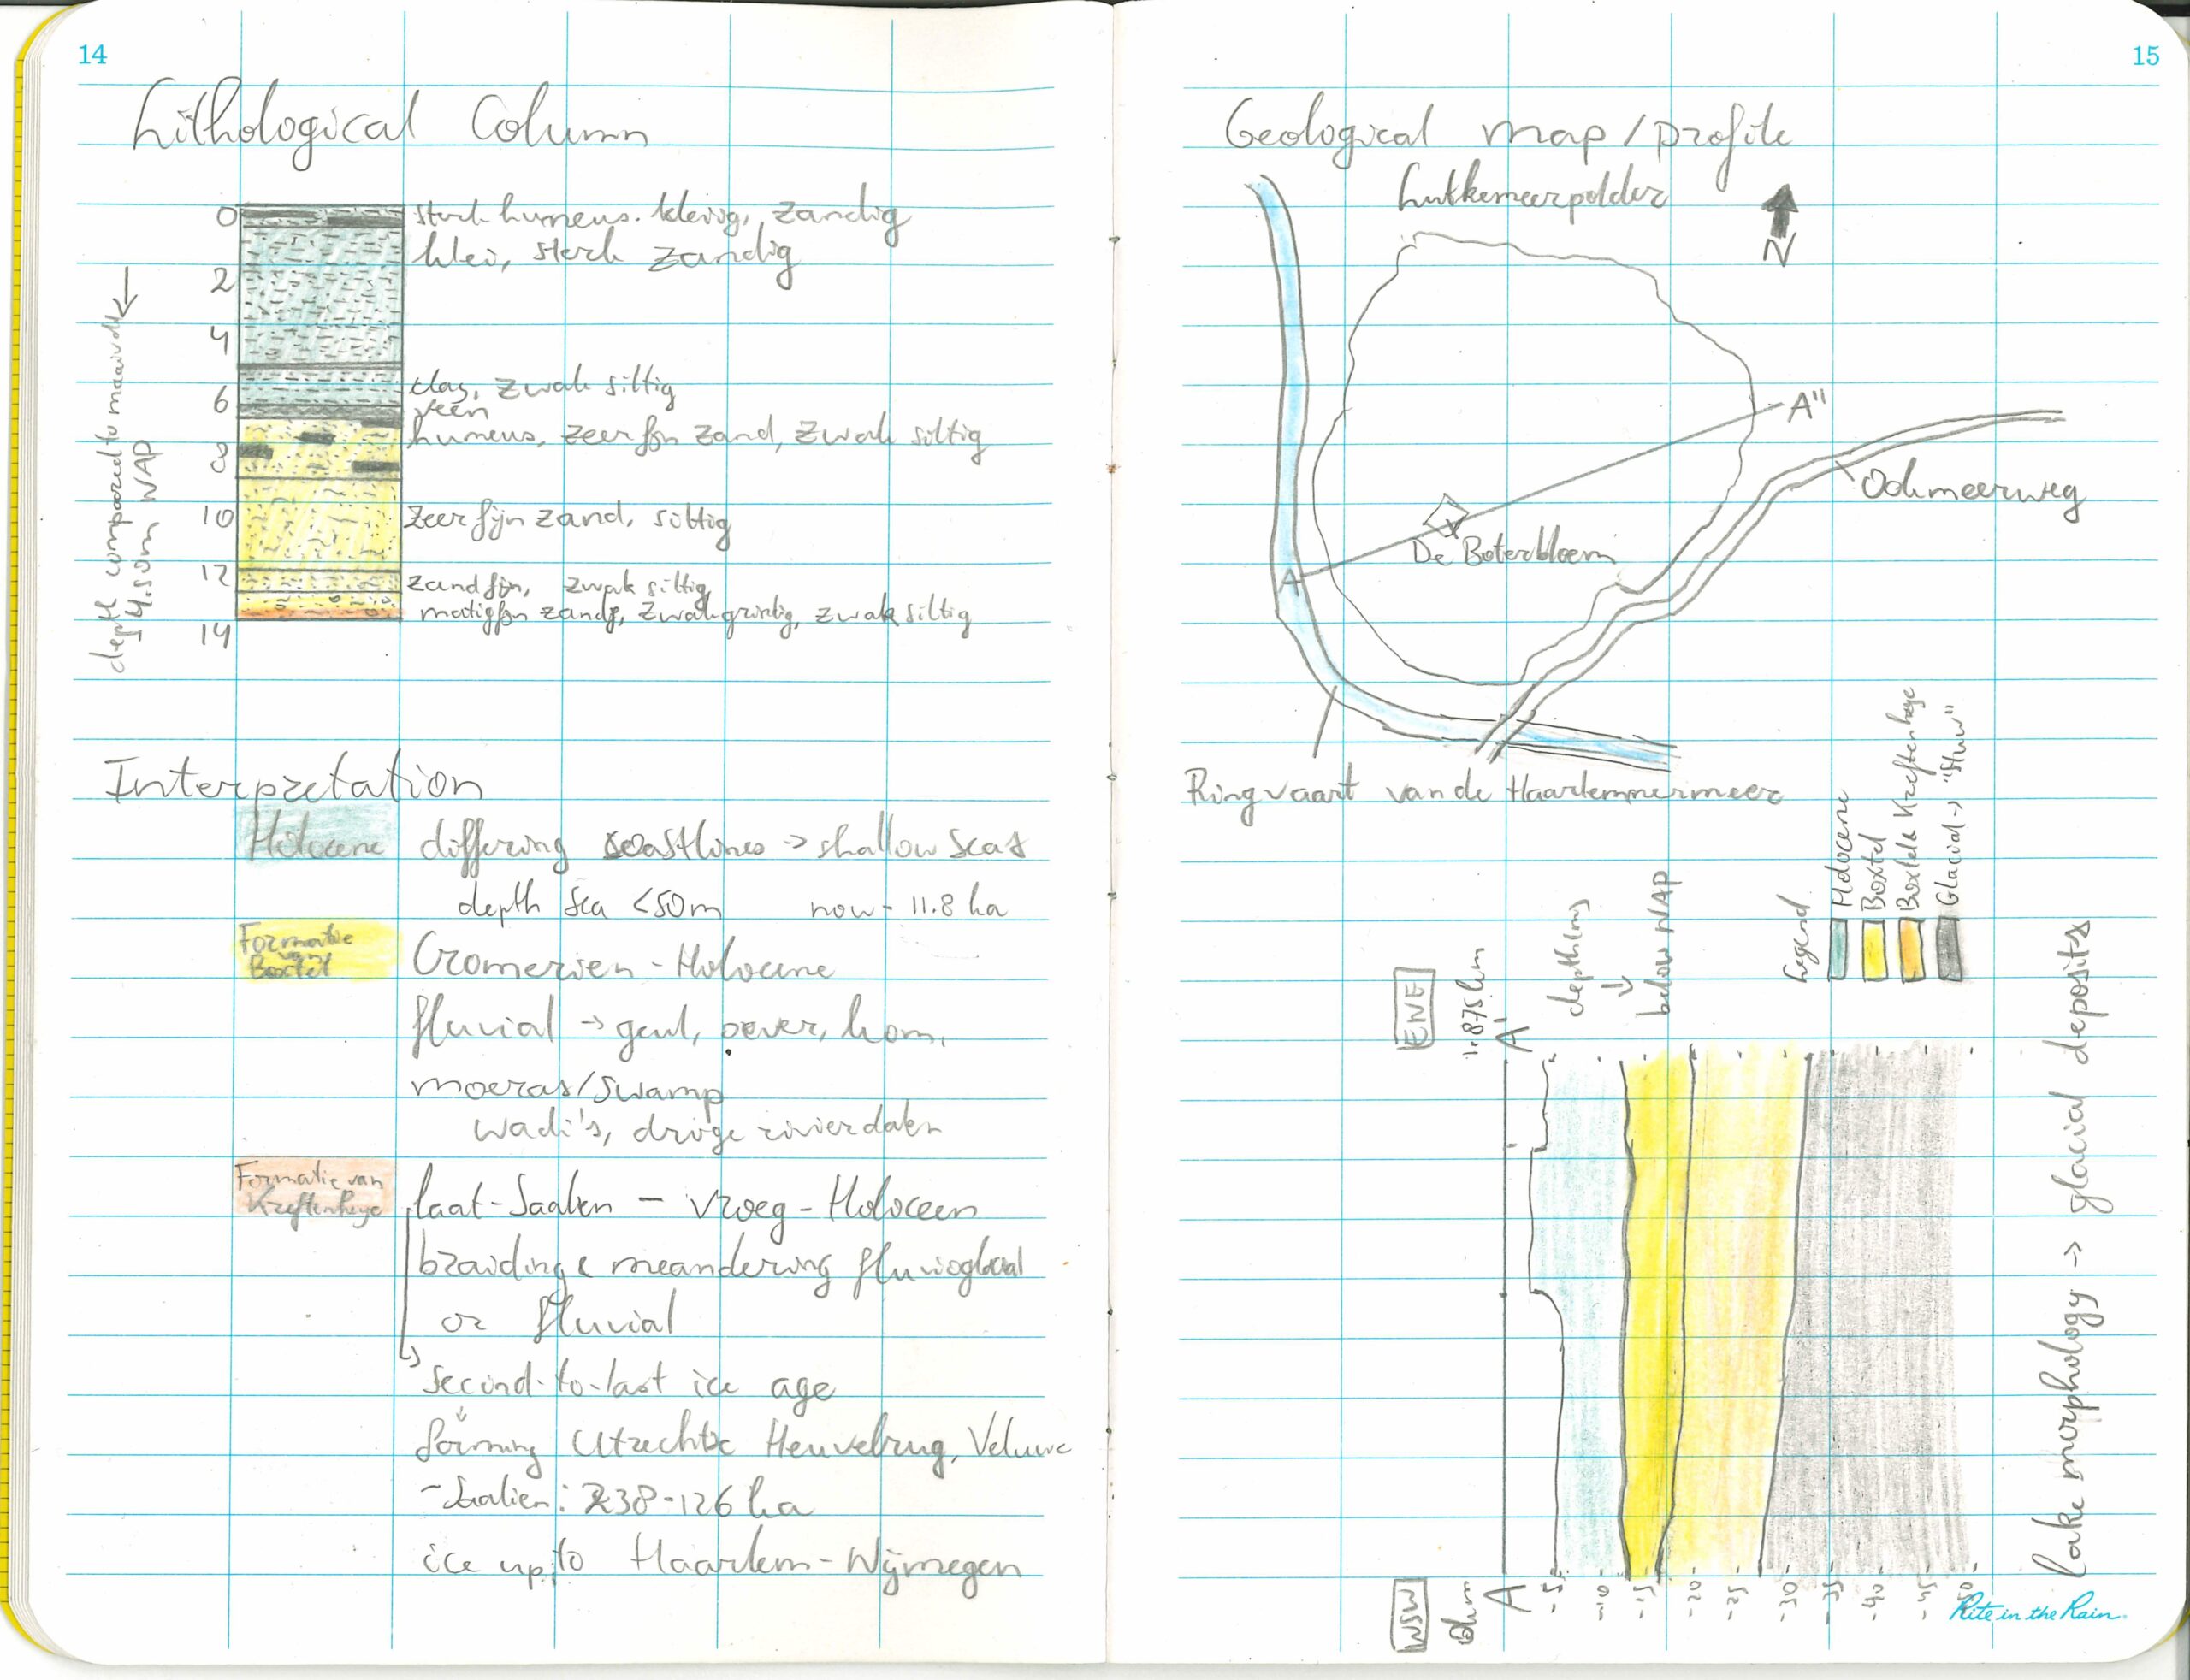 14
Lithological Column
0
sterk humeus. kleiig, zandig
klei, sterk zandig
2
4
clay, zwak siltig
6
veen
humeus, zeer fijn zand, zwak siltig
8
10
zeer fijn zand, siltig
12
zand fijn, zwak siltig
matig fijn zand, zwak grindig, zwak siltig
14
depth compared to maaiveld
4.50m NAP
Interpretation
Holocene
differing coastlines -> shallow seas
depth sea <50m now - 11.8 ka
Formatie
van
Boxtel
Cromerien - Holocene
fluvial -> geul, oever, kom,
moeras/swamp
wadi's, droge rivierdalen
Formatie van
Kreftenheye
laat-Saalien - vroeg-Holoceen
braiding & meandering fluvioglacial
or fluvial
second-to-last ice age
forming Utrechtse Heuvelrug, Veluwe
~Saalien: 238-126 ka
ice up to Haarlem-Nijmegen
15
Geological map/profile
Lutkemeerpolder
N
A"
Ookmeerweg
De Boterbloem
A
Ringvaart van de Haarlemmermeer
Legend
Holocene
Boxtel
Boxtel & Kreftenheye
Glacial -> "Stuw"
ENE
1.875km
A'
depth in s
below NAP
WSW
0km
A
-5
-10
-15
-20
-25
-30
-35
-40
-45
-50
lake morphology -> glacial deposits
Rite in the Rain.